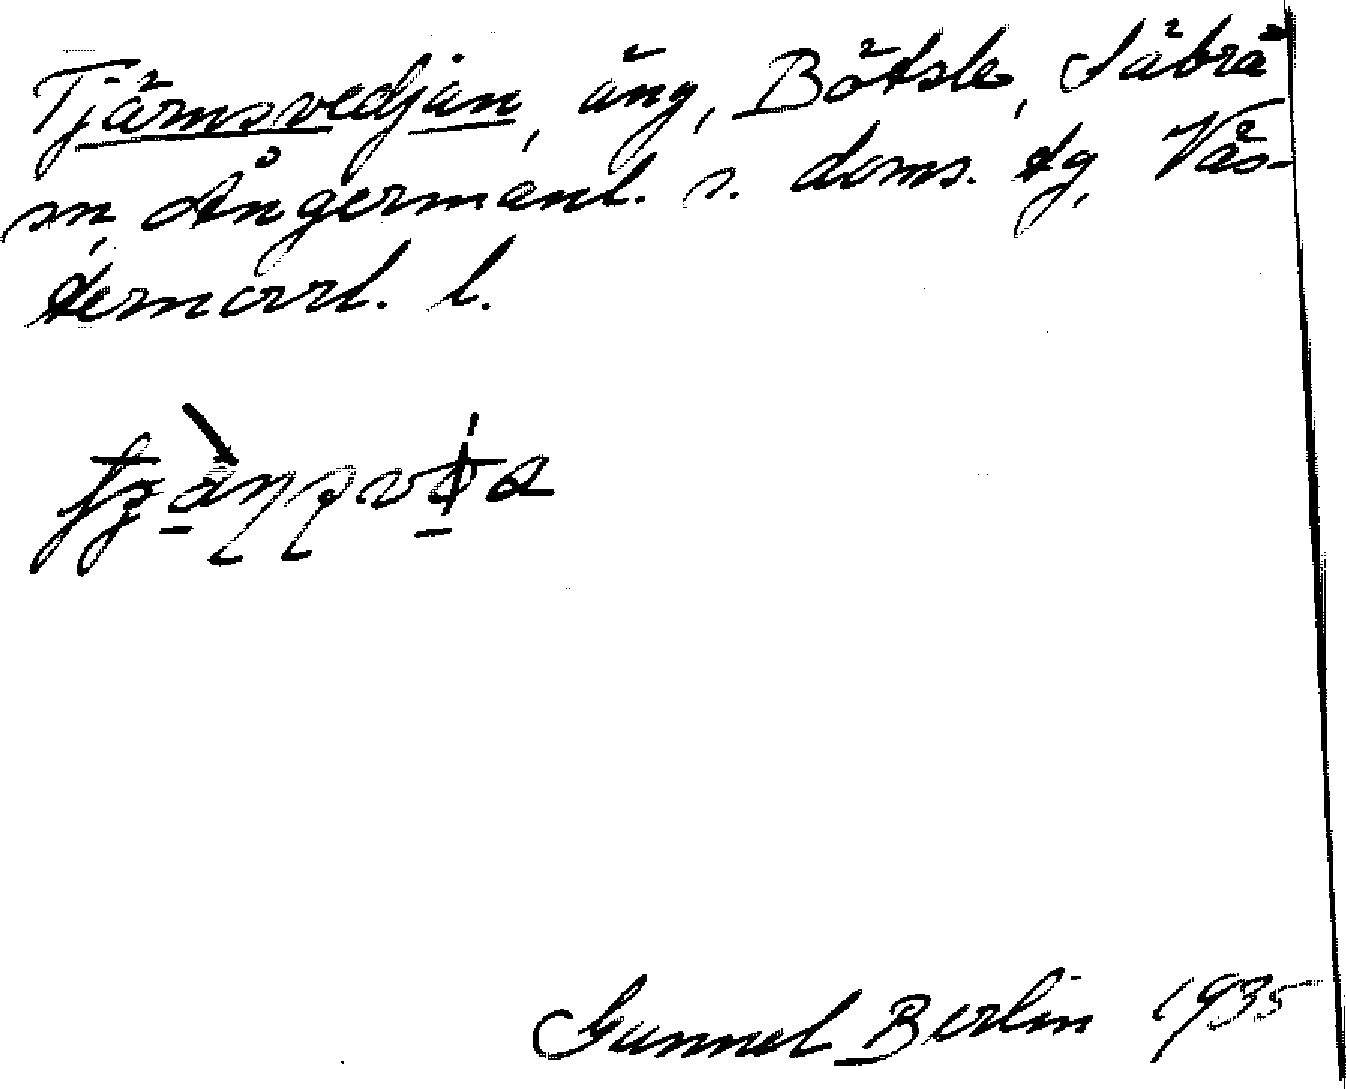 Tjärnsvedjan, äng, Bölsle, Säbrå
sn, Ångermanl. s. doms. tg, Väs-
ternorrl. l.
Gunnel Berlin 1935